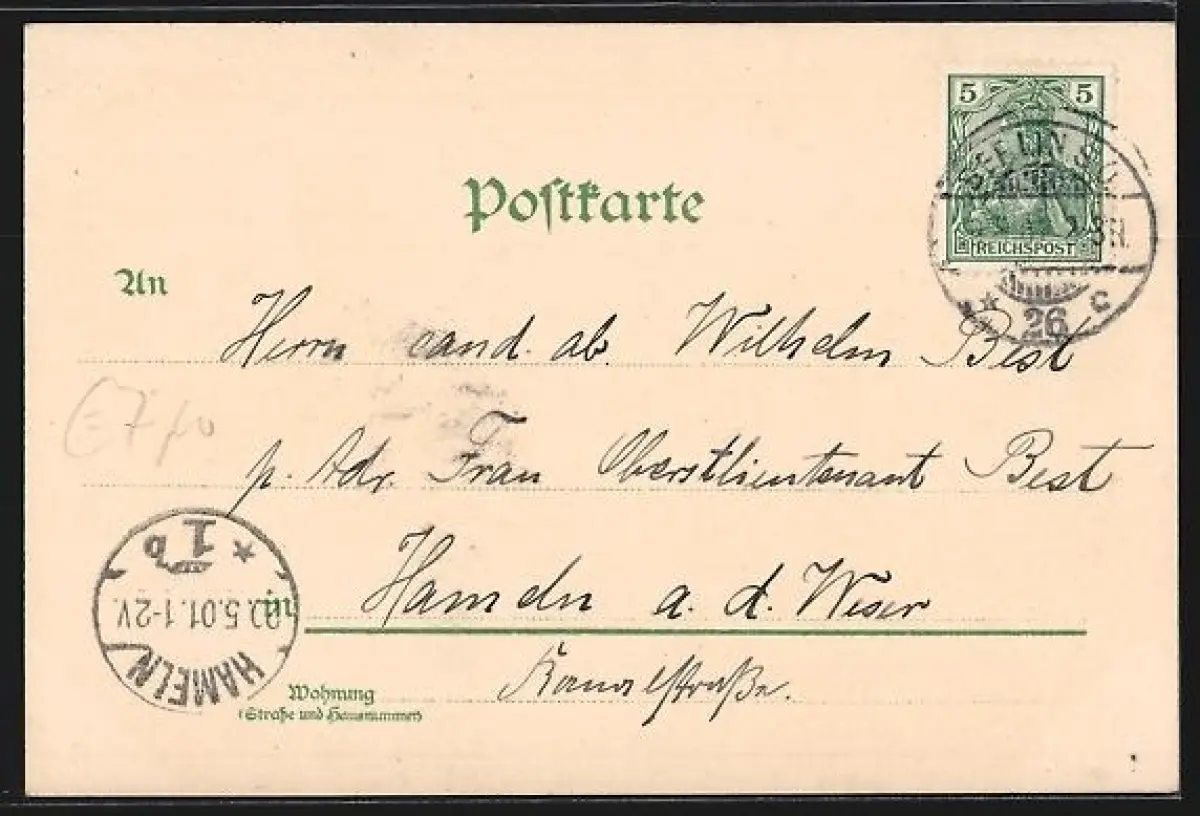 5 5
REICHSPOST
BERLIN S.W.
26 C
Postkarte
An
Herrn cand. ab. Wilhelm Best
p. Adr. Frau Oberstlieutenant Best
in Hameln a. d. Weser
Kanalstraße.
Wohnung
(Straße und Hausnummer)
HAMELN
5.01.1-2V.
1 b